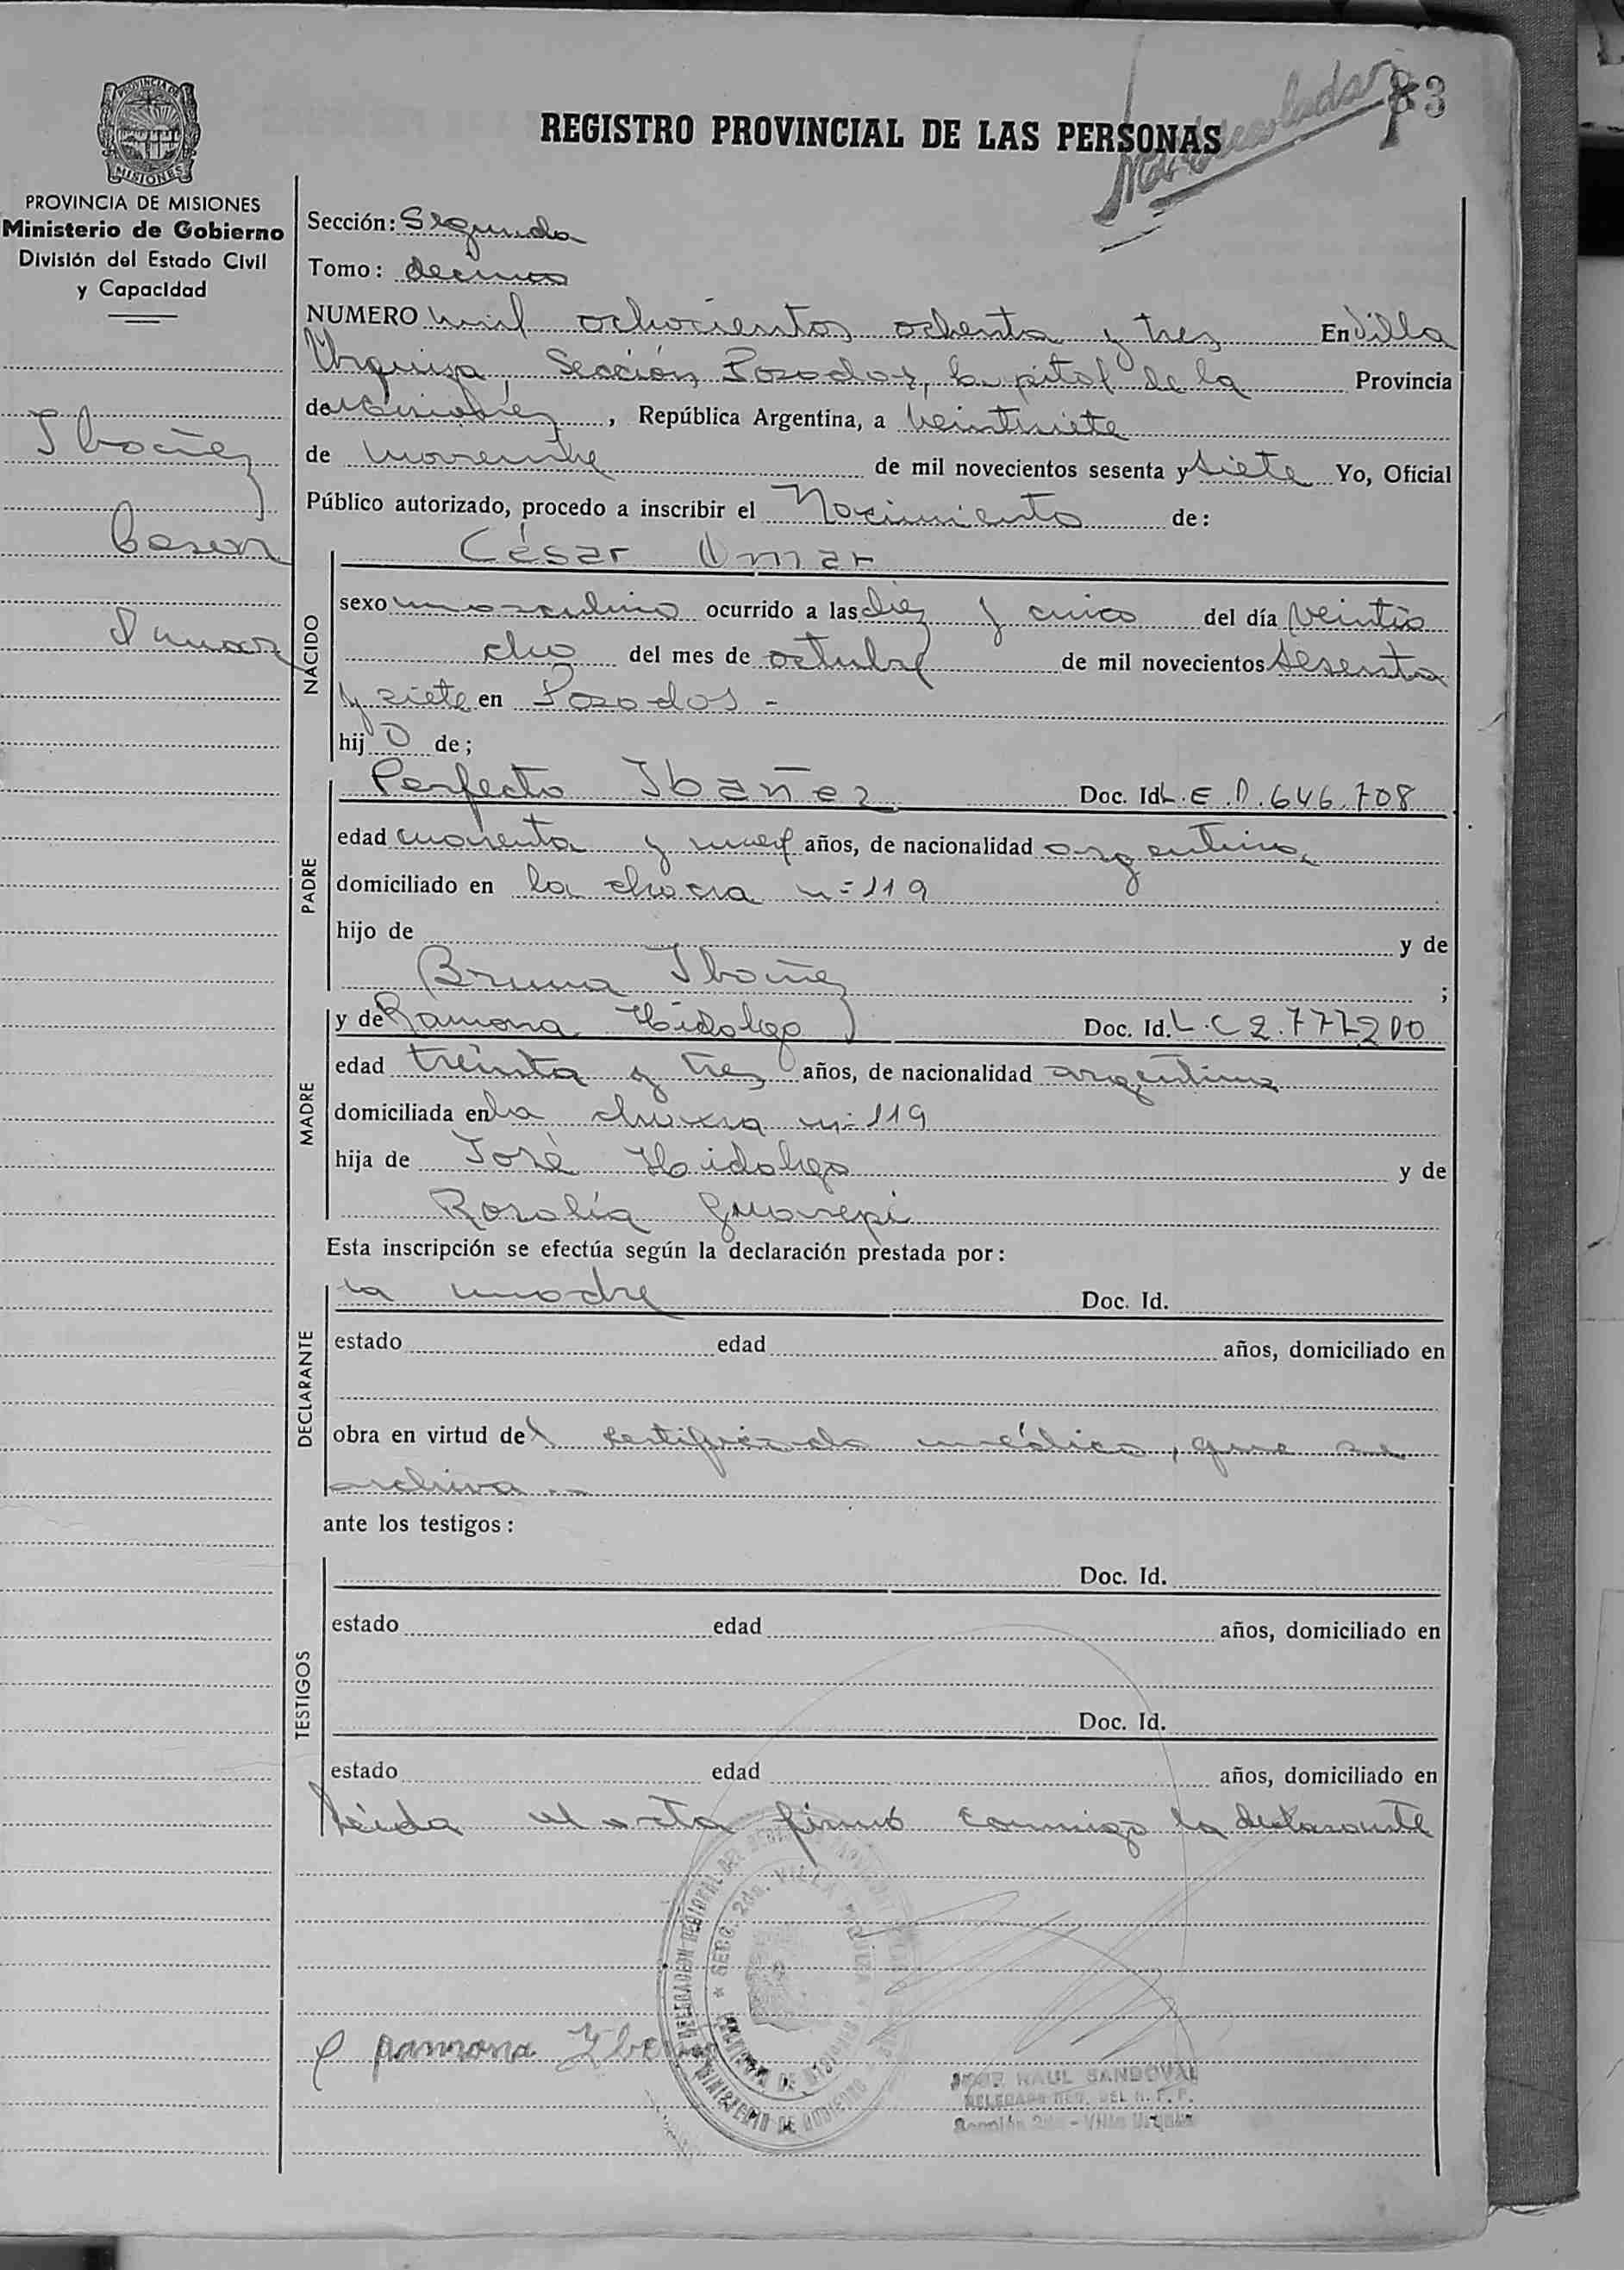 83
REGISTRO PROVINCIAL DE LAS PERSONAS
PROVINCIA DE
MISIONES
PROVINCIA DE MISIONES
Ministerio de Gobierno
División del Estado Civil
y Capacidad
Ibañez
Cesar
Omar
Sección: Segunda
Tomo: decimo
NUMERO mil ochocientos ochenta y tres En Villa
Urquiza, Sección Posadas, Capital de la Provincia
de Misiones, República Argentina, a veintisiete
de noviembre de mil novecientos sesenta y siete Yo, Oficial
Público autorizado, procedo a inscribir el Nacimiento de:
César Omar
NACIDO
sexo masculino ocurrido a las diez y cinco del día veintio
cho del mes de octubre de mil novecientos sesenta
y siete en Posadas -
hijo de;
PADRE
Perfecto Ibañez Doc. Id. L.E. 646.708
edad cuarenta y nueve años, de nacionalidad argentina
domiciliado en la chacra n= 119
hijo de y de
Bruna Ibañez ;
MADRE
y de Ramona Hidalgo Doc. Id. L.C 2.777.200
edad treinta y tres años, de nacionalidad argentina
domiciliada en la chacra n= 119
hija de José Hidalgo y de
Rosalía
Esta inscripción se efectúa según la declaración prestada por:
DECLARANTE
la madre Doc. Id.
estado edad años, domiciliado en
obra en virtud del certificado médico, que se
archiva --
ante los testigos:
TESTIGOS
Doc. Id.
estado edad años, domiciliado en
Doc. Id.
estado edad años, domiciliado en
Leida el acta firmó conmigo la declarante
SECC. 2da. VILLA URQUIZA
MINISTERIO DE GOBIERNO
Ramona
JOSE RAUL SANDOVAL
Sección 2da - Villa Urquiza